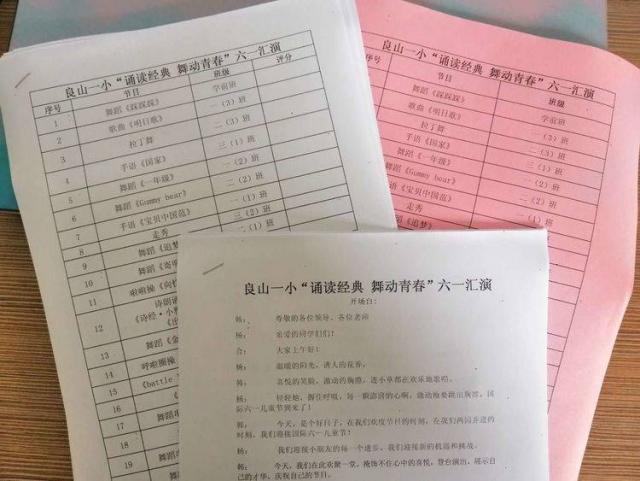 良山一小“诵读经典 舞动青春”六一汇演
序号 节目 班级 评分
1 舞蹈《踩踩踩》 学前班
2 歌曲《明日歌》 一（3）班
3 拉丁舞 二（3）班
4 手语《国家》 三（1）班
5 舞蹈《一年级》 二（2）班
6 舞蹈《Gummy bear》 二（1）班
7 手语《宝贝中国范》 一（1）班
8 走秀 三（2）班
9 舞蹈《追梦》
10 舞蹈《寄
11 啦啦操《向
12 诗朗诵
《诗经·小
13 舞蹈《金
14 呼啦圈操
15 《battle
16 舞蹈
18 舞蹈
19 舞蹈
良山一小“诵读经典 舞动青春”六一汇演
序号 节目 班级
舞蹈《踩踩踩》 学前班
歌曲《明日歌》 一（3）班
拉丁舞
手语《国家》 三（1）班
舞蹈《一年级》 二（2）班
舞蹈《Gummy bear》 二（1）班
手语《宝贝中国范》
走秀
舞蹈《追梦》
良山一小“诵读经典 舞动青春”六一汇演
开场白：
韩： 尊敬的各位领导、各位老师
杨： 亲爱的同学们！
合： 大家上午好！
杨： 温暖的阳光，诱人的花香。
韩： 喜悦的笑脸，激动的胸膛，连小草都在欢乐地歌唱。
杨： 轻轻地，握住呼吸，每一颗澎湃的心啊，激动地要跳出胸膛，国
际六一儿童节到来了！
郭： 今天，是个好日子，在我们欢度节日的时刻，在我们两园并进的
时刻，我们迎接国际六一儿童节！
杨： 我们迎接小朋友的每一个进步，我们迎接新的机遇和挑战。
韩： 今天，我们在此欢聚一堂，掩饰不住心中的喜悦，登台演出，展示自
己的才华，庆祝自己的节日。